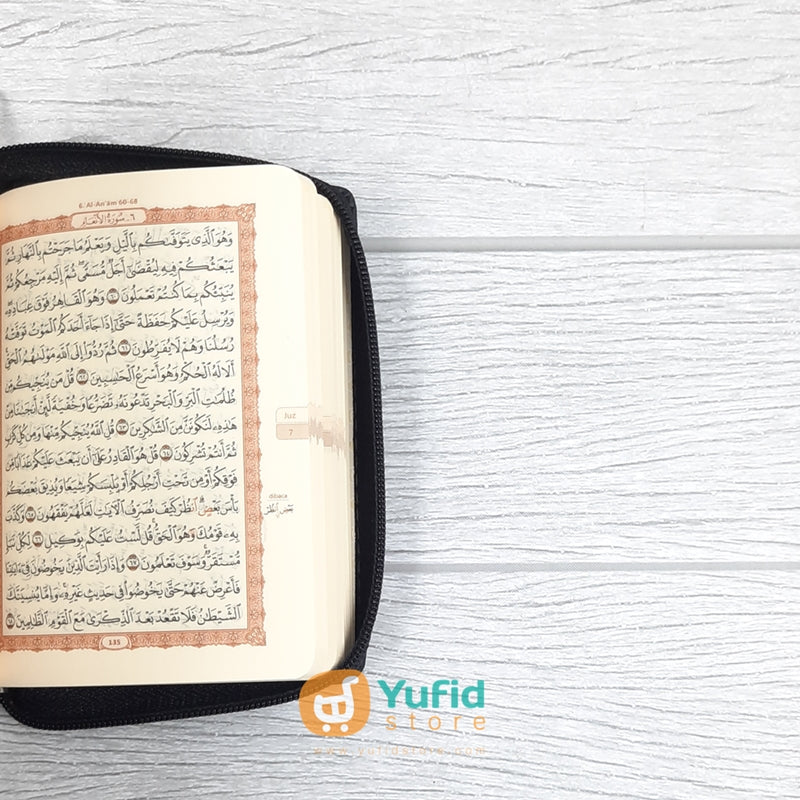 6. Al-An'ām 60-68
٦ - سورة الأنعام
وَهُوَ الَّذِي يَتَوَفَّىكُم بِالَّيْلِ وَيَعْلَمُ مَا جَرَحْتُم بِالنَّهَارِ ثُمَّ
يَبْعَثُكُمْ فِيهِ لِيُقْضَىٰ أَجَلٌ مُّسَمًّى ثُمَّ إِلَيْهِ مَرْجِعُكُمْ ثُمَّ
يُنَبِّئُكُم بِمَا كُنتُمْ تَعْمَلُونَ ٦٠ وَهُوَ الْقَاهِرُ فَوْقَ عِبَادِهِ
وَيُرْسِلُ عَلَيْكُمْ حَفَظَةً حَتَّىٰ إِذَا جَاءَ أَحَدَكُمُ الْمَوْتُ تَوَفَّتْهُ
رُسُلُنَا وَهُمْ لَا يُفَرِّطُونَ ٦١ ثُمَّ رُدُّوا إِلَى اللَّهِ مَوْلَىٰهُمُ الْحَقِّ
أَلَا لَهُ الْحُكْمُ وَهُوَ أَسْرَعُ الْحَاسِبِينَ ٦٢ قُلْ مَن يُنَجِّيكُم مِّن
ظُلُمَاتِ الْبَرِّ وَالْبَحْرِ تَدْعُونَهُ تَضَرُّعًا وَخُفْيَةً لَّئِنْ أَنجَىٰنَا مِنْ
هَٰذِهِ لَنَكُونَنَّ مِنَ الشَّاكِرِينَ ٦٣ قُلِ اللَّهُ يُنَجِّيكُم مِّنْهَا وَمِن كُلِّ كَرْبٍ
ثُمَّ أَنتُمْ تُشْرِكُونَ ٦٤ قُلْ هُوَ الْقَادِرُ عَلَىٰ أَن يَبْعَثَ عَلَيْكُمْ عَذَابًا مِّن
فَوْقِكُمْ أَوْ مِن تَحْتِ أَرْجُلِكُمْ أَوْ يَلْبِسَكُمْ شِيَعًا وَيُذِيقَ بَعْضَكُم
بَأْسَ بَعْضٍ انظُرْ كَيْفَ نُصَرِّفُ الْآيَاتِ لَعَلَّهُمْ يَفْقَهُونَ ٦٥ وَكَذَّبَ
بِهِ قَوْمُكَ وَهُوَ الْحَقُّ قُل لَّسْتُ عَلَيْكُم بِوَكِيلٍ ٦٦ لِّكُلِّ نَبَإٍ
مُّسْتَقَرٌّ وَسَوْفَ تَعْلَمُونَ ٦٧ وَإِذَا رَأَيْتَ الَّذِينَ يَخُوضُونَ فِي آيَاتِنَا
فَأَعْرِضْ عَنْهُمْ حَتَّىٰ يَخُوضُوا فِي حَدِيثٍ غَيْرِهِ وَإِمَّا يُنسِيَنَّكَ
الشَّيْطَانُ فَلَا تَقْعُدْ بَعْدَ الذِّكْرَىٰ مَعَ الْقَوْمِ الظَّالِمِينَ ٦٨
135
Juz
7
dibaca
بَعْضِ نِ انْظُرْ
Yufid
store
www.yufidstore.com